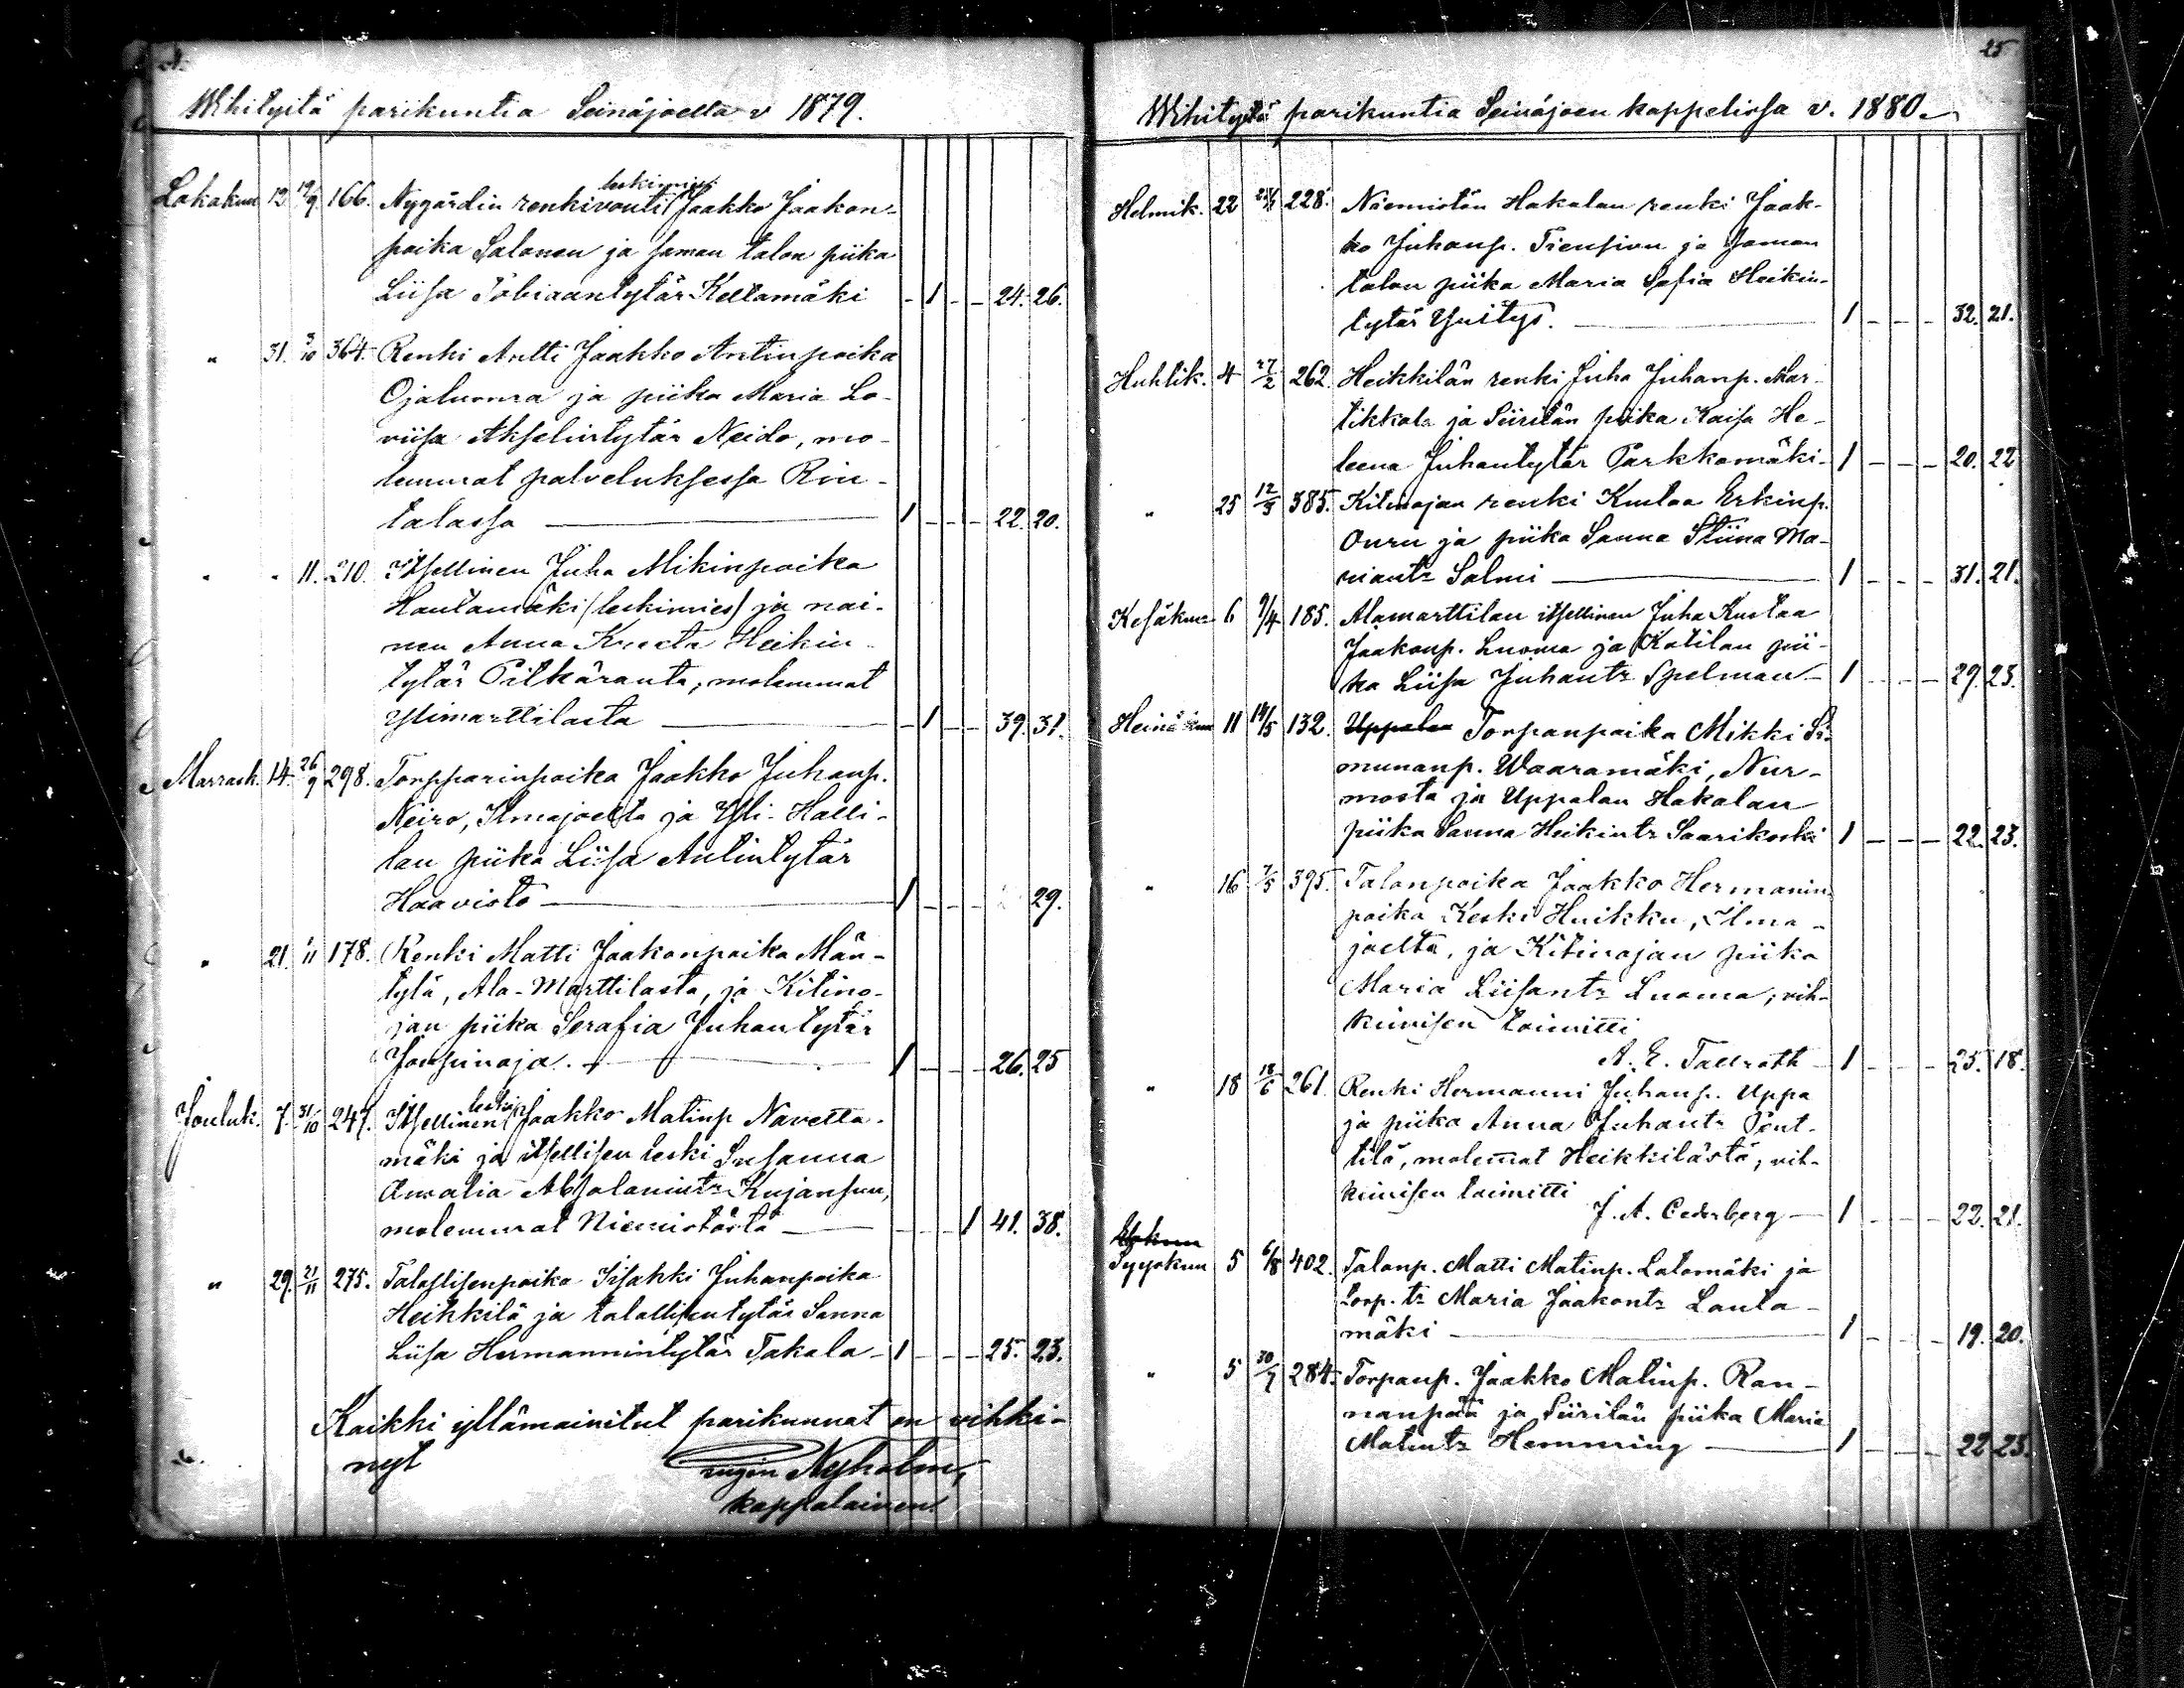 Wihityitä parikuntia Seinäjoella v 1879.
Lokakuu 12 19/9. 166. Nygårdin renkivouti leskimies Jaakko Jaakon-
poika Salonen ja saman talon piika
Liisa Tobiaantytär Keltamäki - 1 - - 24. 26.
" 31. 3/10 364. Renki Antti Jaakko Antinpoika
Ojaluoma ja piika Maria Lo-
viisa Akselintytär Neido, mo-
lemmat palveluksessa Rin-
talassa 1 - - - 22. 20.
" " 11. 210. Itsellinen Juha Mikinpoika
Hautamäki (leskimies) ja nai-
nen Anna Kreeta Heikin-
tytär Pitkäranta, molemmat
Ylimarttilasta - 1 - - 39. 31.
Marrask. 14. 26/9 298. Torpparinpoika Jaakko Juhanp.
Neiro, Ilmajoelta ja Yli-Halli-
lan piika Liisa Antintytär
Haavisto 1 - - - 29.
" 21. /11 178. Renki Matti Jaakonpoika Män-
tylä, Ala-Marttilasta, ja Kitino-
jan piika Serafia Juhantytär
Jouppinoja. 1 - - - 26. 25
Jouluk. 7. 31/10 247. Itsellinen leski Jaakko Matinp Navetta-
mäki ja itsellisen leski Susanna
Amalia Absalomintr Kujansuu,
molemmat Niemistöstä - - - 1 41. 38.
" 29. 21/11 275. Talollisenpoika Iisakki Juhanpoika
Heikkilä ja talollisentytär Sanna
Liisa Hermannintytär Takala - 1 - - - 25. 23.
Kaikki yllämainitut parikunnat on vihki-
nyt
Nyholm,
kappalainen.
25
Wihityitä parikuntia Seinäjoen kappelissa v. 1880.
Helmik. 22 228. Niemistön Hakalan renki Jaak-
ko Juhanp. Tiensivu ja saman
talon piika Maria Sofia Heikin-
tytär Yritys. 1 - - - 32. 21.
Huhtik. 4 27/2 262. Heikkilän renki Juha Juhanp. Mar-
tikkala ja Siirilän piika Kaisa He-
leena Juhantytär Parkkamäki - 1 - - - 20. 22
" 25 12/3 385. Kitinojan renki Kustaa Erkinp.
Ouru ja piika Sanna Stiina Ma-
riantr Salmi 1 - - - 31. 21.
Kesäkuu 6 9/4 185. Alamarttilan itsellinen Juha Kustaa
Jaakonp. Luoma ja Katilan pii-
ka Liisa Juhantr Spelman - 1 - - - 29. 23.
Heinäkuu 11 14/5 132. Uppalan Torpanpoika Mikki Si-
munanp. Waaramäki, Nur-
mosta ja Uppalan Hakalan
piika Sanna Heikintr Saarikoski 1 - - - 22. 23.
" 16 7/5 395. Talonpoika Jaakko Hermanin
poika Keski Huikku, Ilma-
joelta, ja Kitinojan piika
Maria Liisantr Luoma; vih-
kimisen toimitti
A. E. Tallroth - 1 - - - 25. 18.
" 18 18/6 261. Renki Hermanni Juhanp. Uppa
ja piika Anna Juhantr Pent-
tilä, molemat Heikkilästä; vih-
kimisen toimitti
J. A. Cederberg - 1 - - - 22. 21.
Syyskuu 5 6/8 402. Talonp. Matti Matinp. Latomäki ja
torp. tr Maria Jaakontr Lauta-
mäki 1 - - - 19. 20.
" 5 30/7 284. Torpanp. Jaakko Matinp. Ran-
nanpää ja Siirilän piika Maria
Matintr Hemming 1 - - - 22 23.